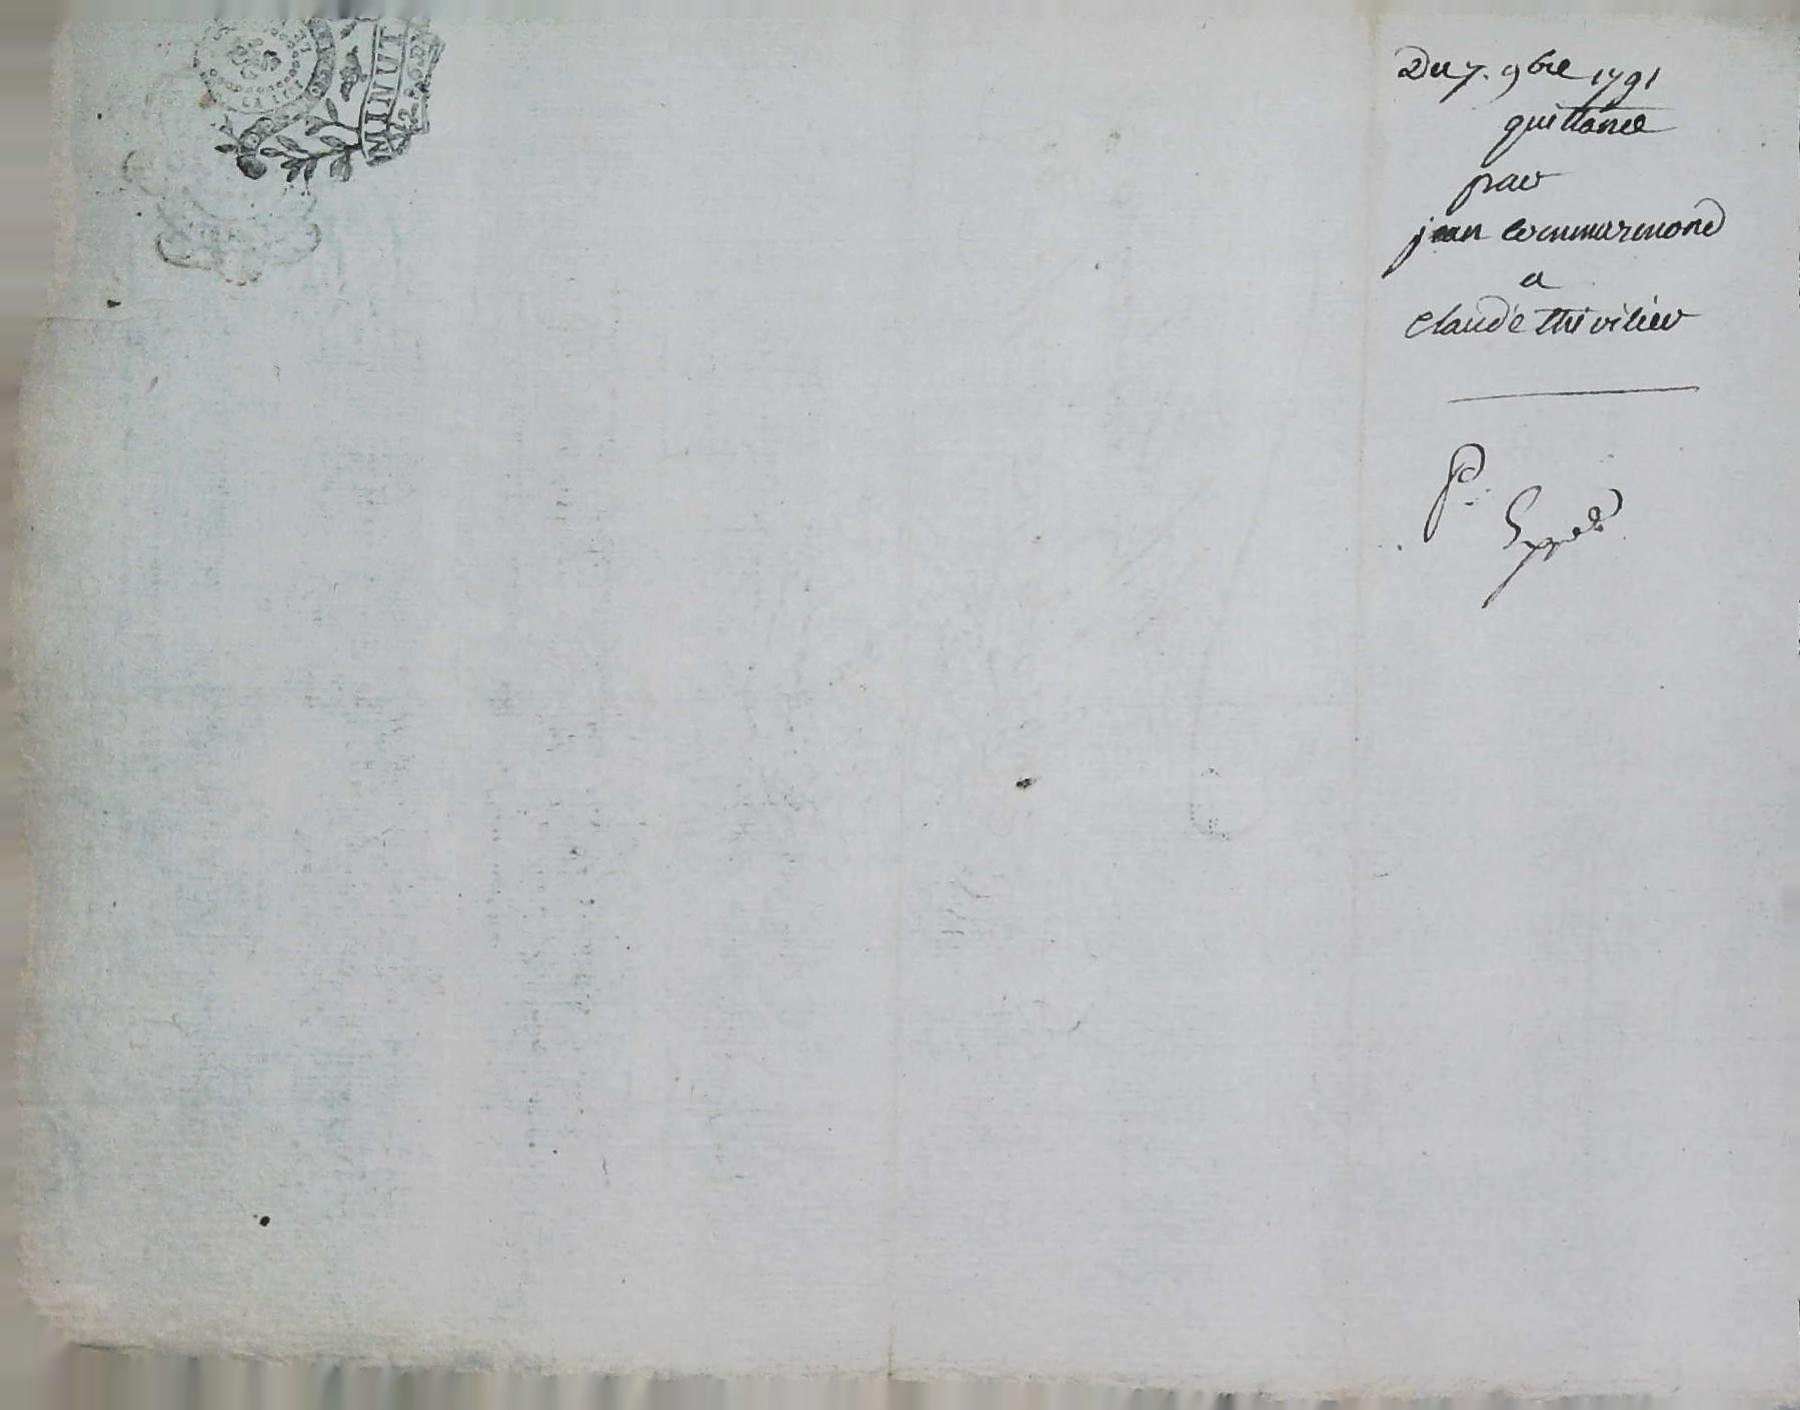 Du 7. 9bre 1791
quittance
par
jean Commarmond
a
Claude thivilier
MINUT